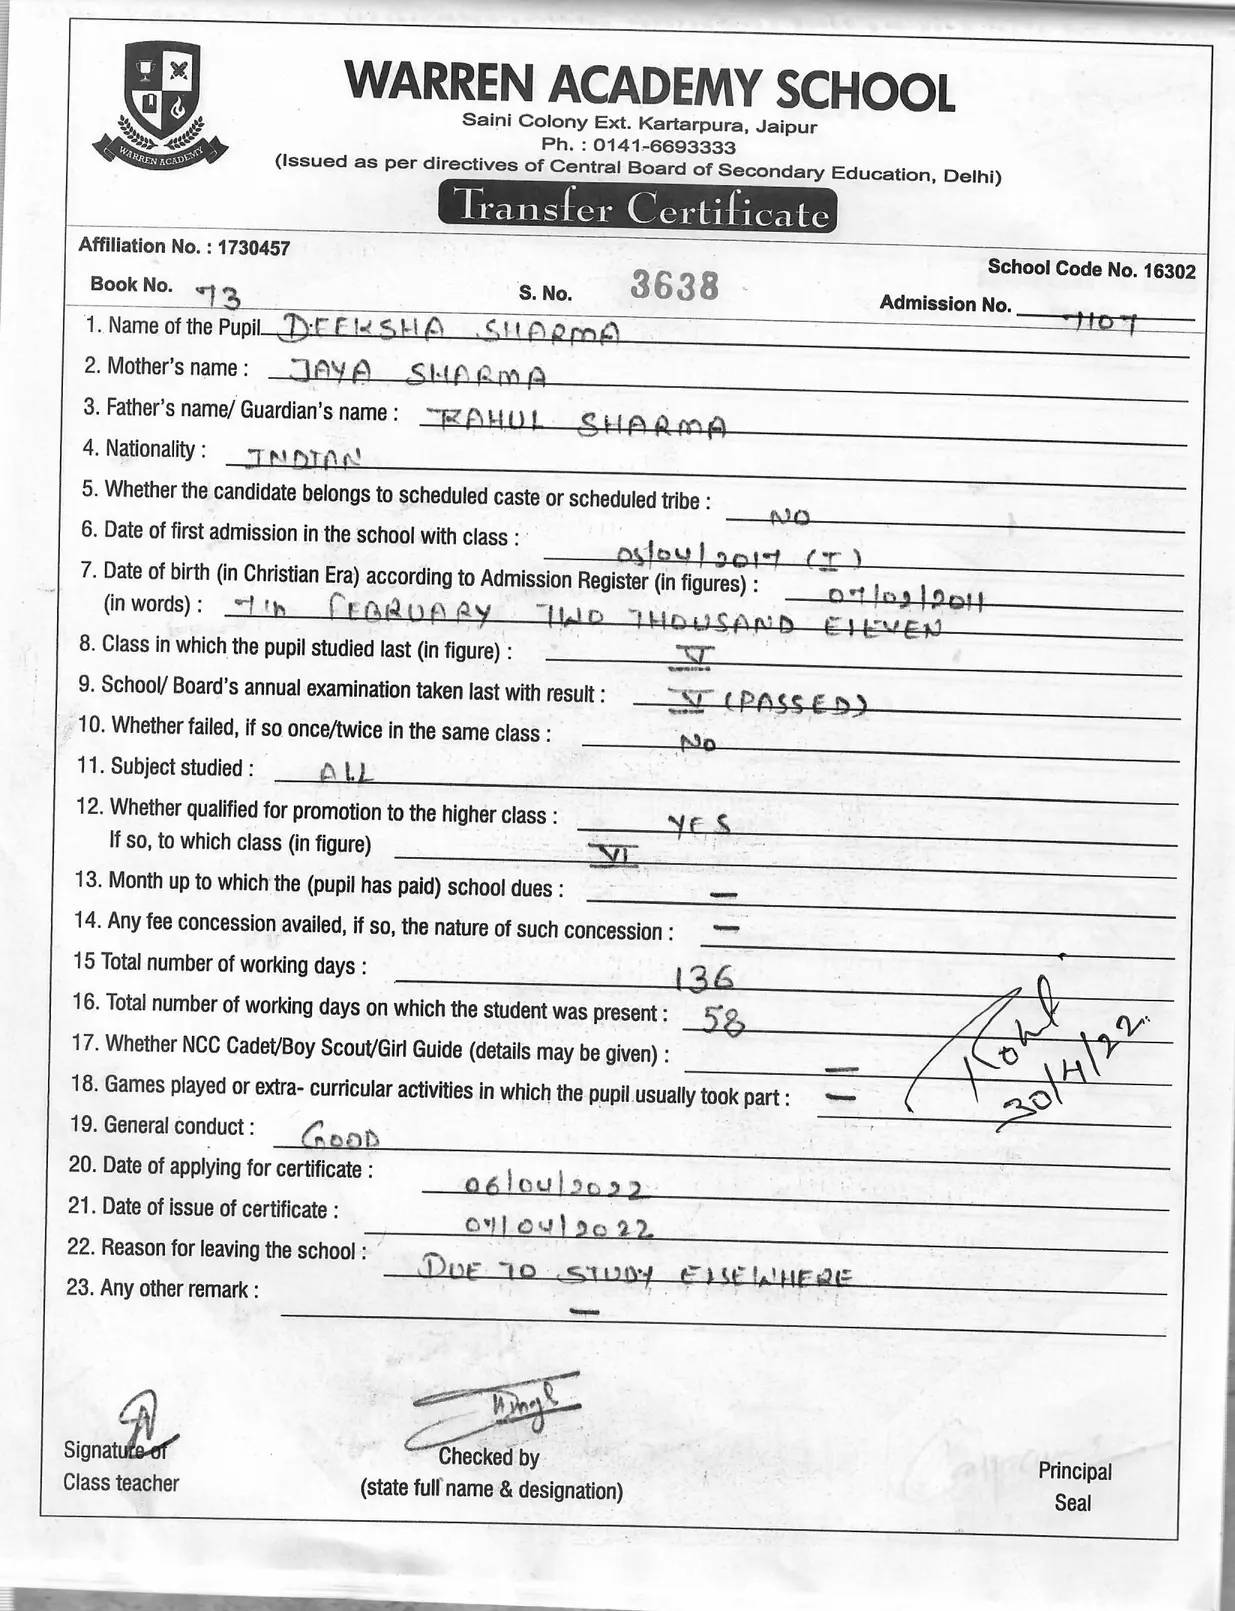 WARREN ACADEMY
WARREN ACADEMY SCHOOL
Saini Colony Ext. Kartarpura, Jaipur
Ph. : 0141-6693333
(Issued as per directives of Central Board of Secondary Education, Delhi)
Transfer Certificate
Affiliation No. : 1730457
School Code No. 16302
Book No. 73 S. No. 3638 Admission No. 7107
1. Name of the Pupil DEEKSHA SHARMA
2. Mother's name : JAYA SHARMA
3. Father's name/ Guardian's name : RAHUL SHARMA
4. Nationality : INDIAN
5. Whether the candidate belongs to scheduled caste or scheduled tribe : NO
6. Date of first admission in the school with class : 05/04/2017 (I)
7. Date of birth (in Christian Era) according to Admission Register (in figures) : 07/02/2011
(in words) : 7th FEBRUARY TWO THOUSAND ELEVEN
8. Class in which the pupil studied last (in figure) : V
9. School/ Board's annual examination taken last with result : V (PASSED)
10. Whether failed, if so once/twice in the same class : NO
11. Subject studied : ALL
12. Whether qualified for promotion to the higher class : YES
If so, to which class (in figure) VI
13. Month up to which the (pupil has paid) school dues : —
14. Any fee concession availed, if so, the nature of such concession : —
15 Total number of working days : 136
16. Total number of working days on which the student was present : 58
17. Whether NCC Cadet/Boy Scout/Girl Guide (details may be given) : —
18. Games played or extra- curricular activities in which the pupil usually took part : —
30/4/22
19. General conduct : GOOD
20. Date of applying for certificate : 06/04/2022
21. Date of issue of certificate : 07/04/2022
22. Reason for leaving the school : DUE TO STUDY ELSEWHERE
23. Any other remark : —
Signature of
Class teacher
Checked by
(state full name & designation)
Principal
Seal